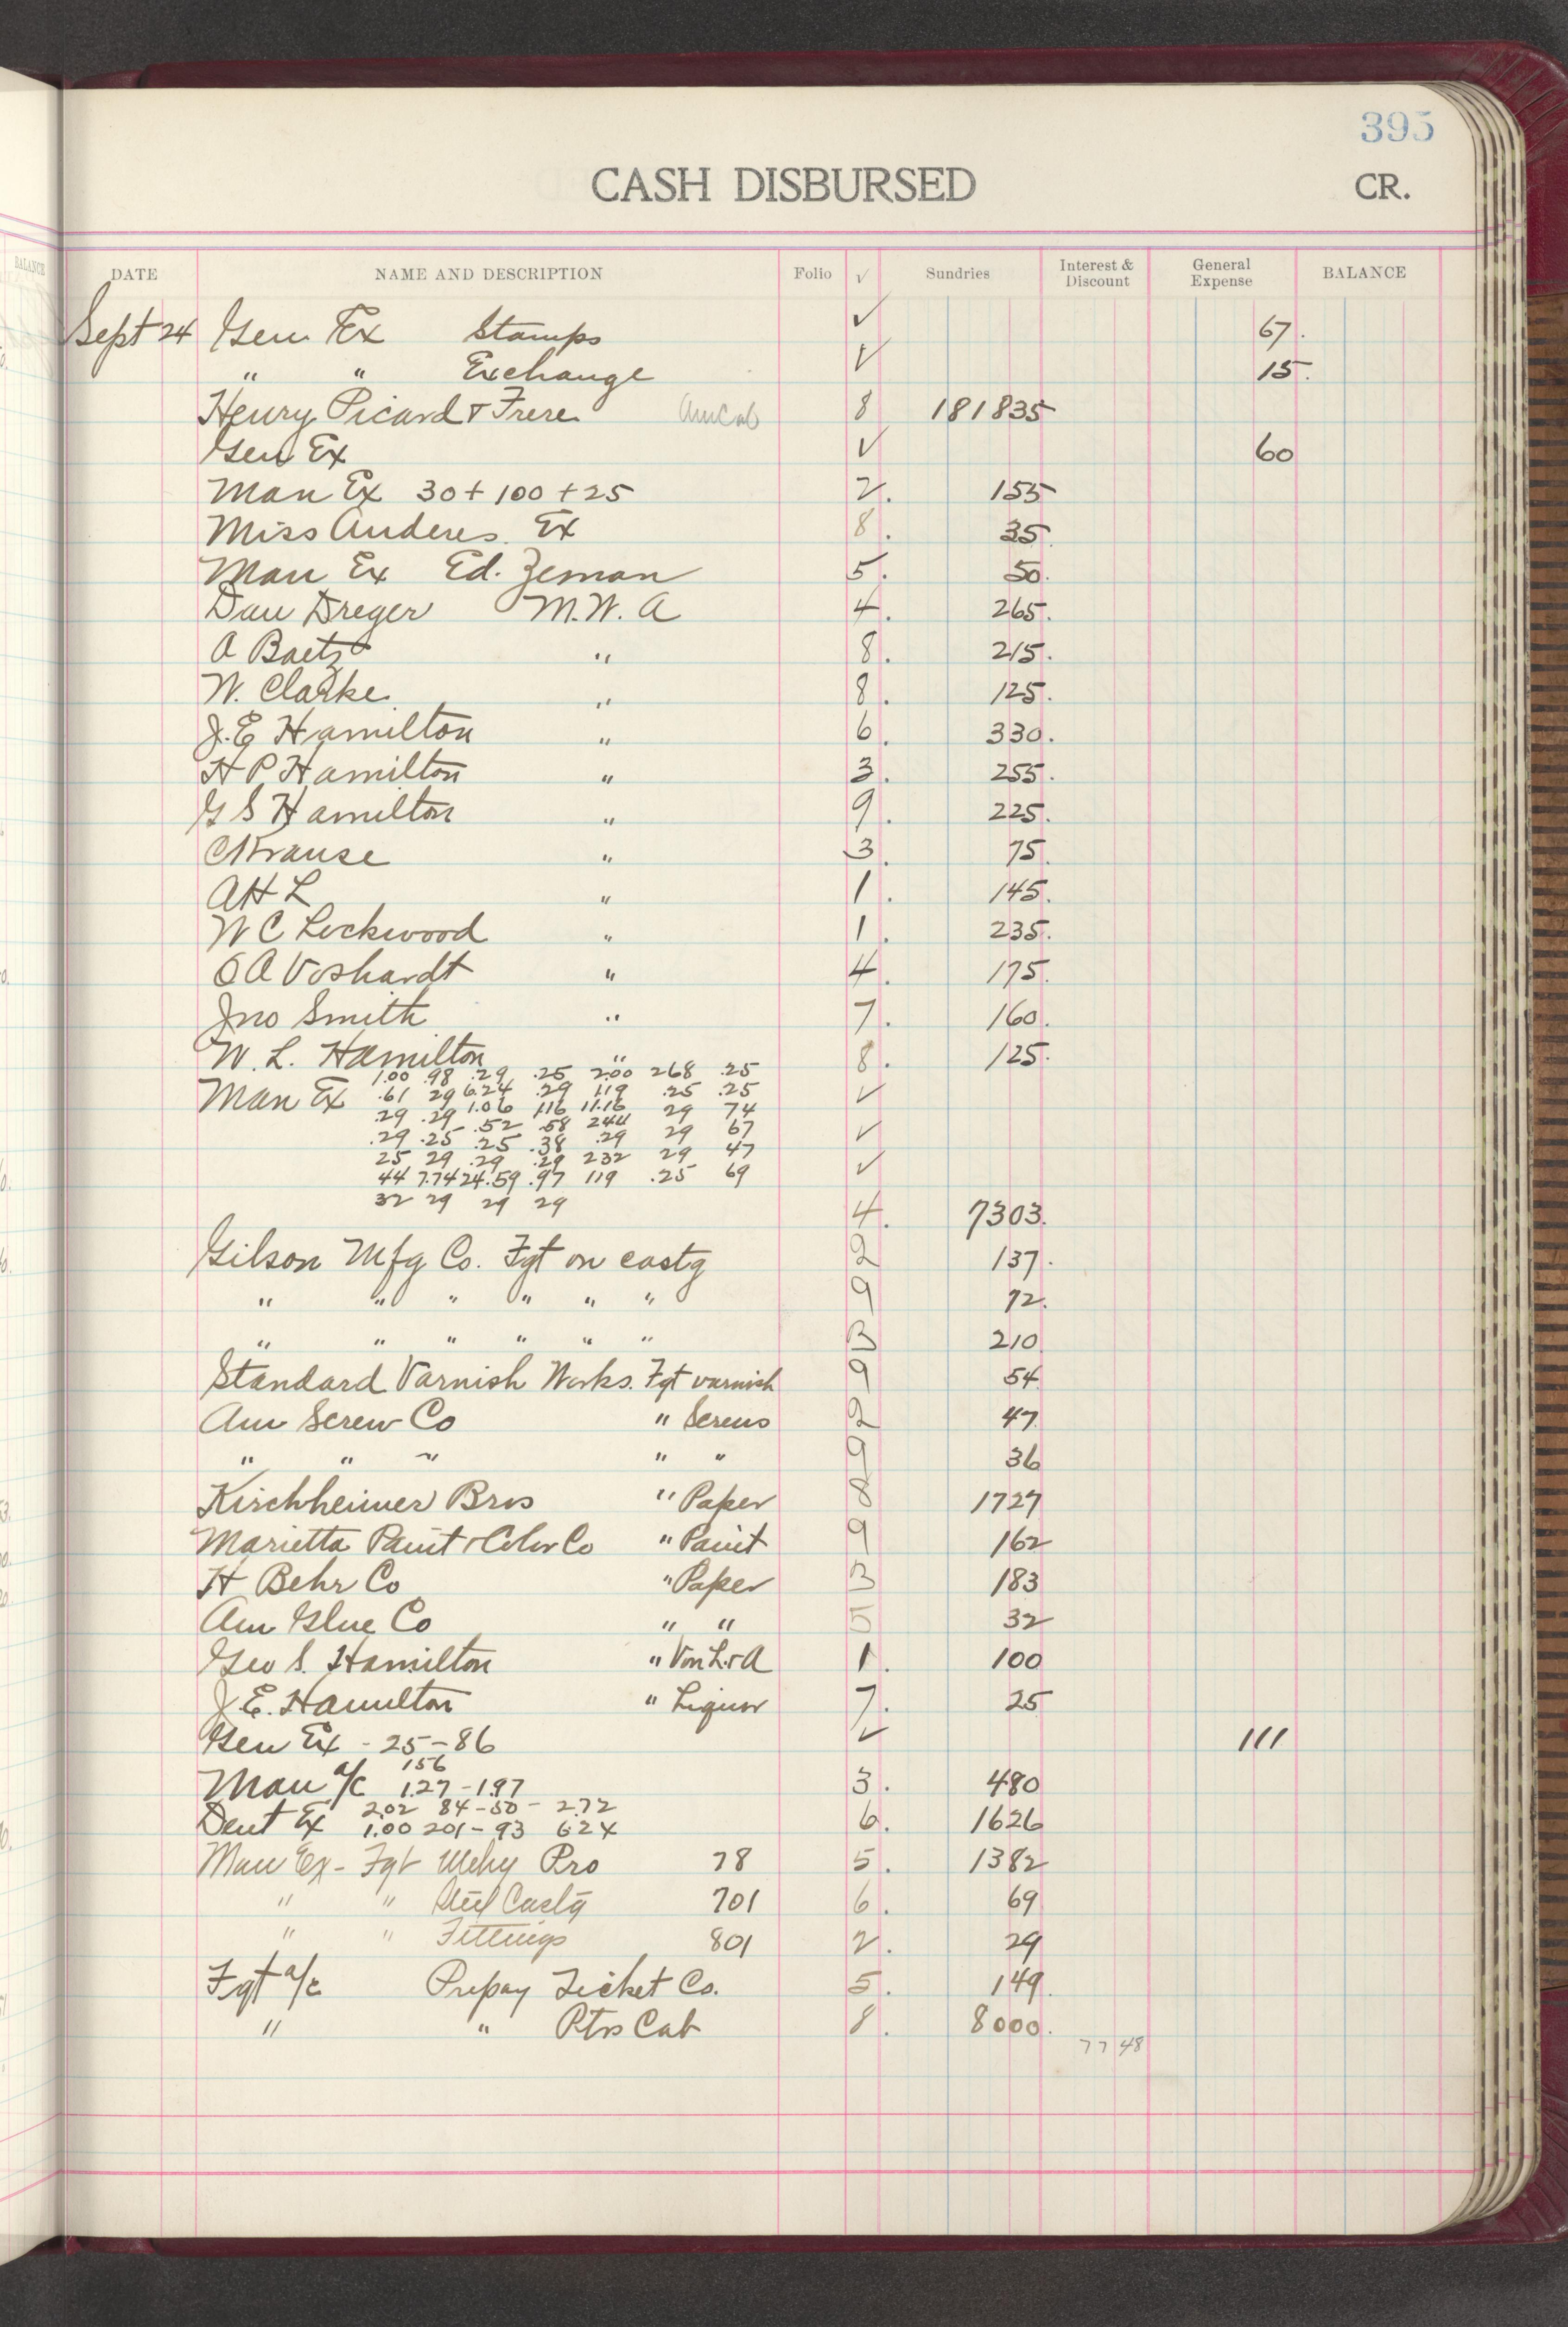 395
CASH DISBURSED CR.
BALANCE
DATE NAME AND DESCRIPTION Folio √ Sundries Interest & Discount General Expense BALANCE
Sept 24 Gen Ex Stamps ✓ 67.
" " Exchange ✓ 15.
Henry Picard & Frere AmCab 8 181835
Gen Ex ✓ 60
Man Ex 30 + 100 + 25 2. 155
Miss Anderes. Ex 8. 35.
Man Ex Ed. Zeman 5. 50.
Dan Dreger M.W.A 4. 265.
A Baetz " 8. 215.
W. Clarke " 8. 125.
J.E Hamilton " 6. 330.
H P Hamilton " 3. 255.
G S Hamilton " 9. 225.
C Krause " 3. 75.
AH L " 1. 145.
W C Lockwood " 1. 235.
O A Voshardt " 4. 175.
Jno Smith " 7. 160.
W. L. Hamilton " 8. 125.
1.00 .98 .29 .25 2.00 268 .25
Man Ex .61 29 6.24 .29 119 .25 .25 ✓
.29 .29 1.06 116 11.16 29 74
.29 .25 .52 .58 244 29 67 ✓
25 29 .25 .38 .29 29 47
44 7.74 .29 .29 232 .25 69 ✓
32 29 24.59 .97 119
29 29
4. 7303.
Gilson Mfg Co. Fgt on castg 2 137.
" " " " " " 9 72.
" " " " " " 3 210
Standard Varnish Works. Fgt varnish 9 54
Am Screw Co " Screws 2 47
" " " " " 9 36
Kirchheimer Bros " Paper 8 1727
Marietta Paint & Color Co " Paint 9 162
H Behr Co " Paper 3 183
Am Glue Co " " 5 32
Geo S. Hamilton " Von L. & A 1. 100
J.E. Hamilton " Liquor 7. 25
Gen Ex - 25 - 86 ✓ 111
156
Man a/c 1.27 - 1.97 3. 480
2.02 84 - 50 - 2.72
Dent Ex 1.00 201 - 93 624 6. 1626
Man Ex - Fgt Mchy Pro 78 5. 1382
" " Steel Castg 701 6. 69
" " Fittings 801 2. 29
Fgt a/c Prepay Ticket Co. 5. 149.
" " Ptrs Cab 8. 8000.
77 48